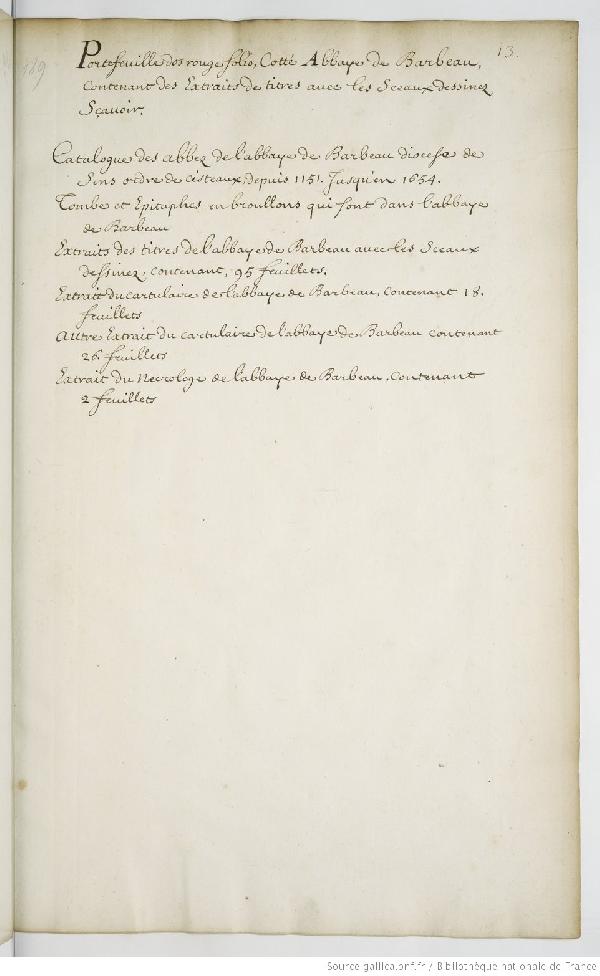 13.
Portefeuille dos rouge folio, Cotté Abbaye de Barbeau,
Contenant des Extraits de titres avec les Sceaux dessinez
Sçavoir.
Catalogue des abbez de l'abbaye de Barbeau diocese de
Sens ordre de cisteaux, depuis 1151. Jusqu'en 1654.
Tombe et Epitaphes en broüillons qui sont dans l'abbaye
de Barbeau
Extraits des titres de l'abbaye de Barbeau avec les Sceaux
Dessinez, contenant, 95 feuillets.
Extrait du cartulaire de l'abbaye de Barbeau, Contenant 18.
feuillets
Autre Extrait du cartulaire de l'abbaye de Barbeau contenant
26 feuillets
Extrait du Necrologe de l'abbaye de Barbeau, Contenant
2 feuillets
Source gallica.bnf.fr / Bibliothèque nationale de France